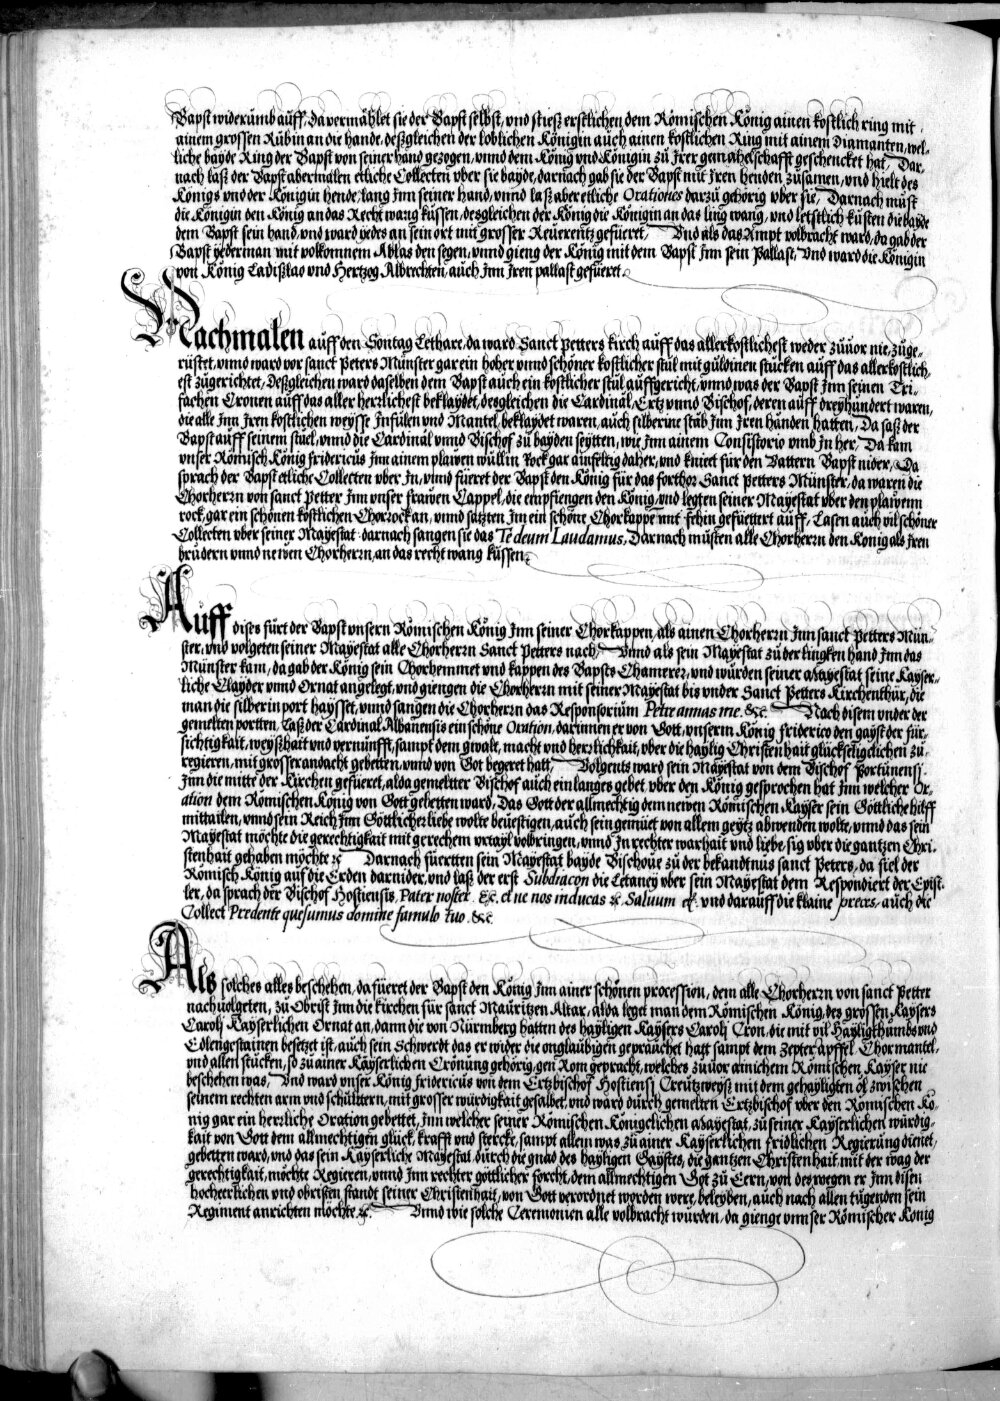 Bapst widerumb auff, da vermählet sie der Bapst selbst, vnd stiesz erstlichen dem Römischen König ainen kostlich ring mit
ainem grossen Rubin an die hande, deßgleichen der loblichen Königin auch ainen kostlichen Ring mit ainem Diamanten, wel-
liche bayde Ring der Bapst von seiner hand gezogen, vnnd dem König vnd Königin zů Irer gemahelschafft geschencket hat, Dar-
nach lasz der Bapst abermalen etliche Collecten vber sie bayde, darnach gab sie der Bapst mit Iren henden zusamen, vnd hielt des
Königs vnd der Königin hende, lang Inn seiner hand, vnnd lasz aber etliche Orationes darzu gehörig vber sie, Darnach must
die Königin den König an das Recht wang küssen, desgleichen der König die Königin an das ling wang, vnd letstlich küsten die bayde
dem Bapst sein hand, vnd ward yedes an sein ort mit grosser Reuerentz gefüeret, Vnd als das Ampt volbracht ward, da gab der
Bapst yederman mit volkomnem Ablas den segen, vnnd gieng der König mit dem Bapst Inn sein Pallast, Vnd ward die Königin
von König Ladißlao vnd Hertzog Albrechten, auch Inn Iren pallast gefüeret.
Nachmalen auff den Sontag Lethare, da ward Sanct Petters kirch auff das allerkostlichest weder zuuor nie, züge-
rüstet, vnnd ward vor sanct Peters Münster gar ein hoher vnnd schöner kostlicher stůl mit guldinen stucken auff das allerkostlich-
est zůgerichtet, Deßgleichen ward daselben dem Bapst auch ein kostlicher stůl auffgericht, vnnd was der Bapst Inn seinen Tri-
fachen Cronen auff das aller herrlichest beklaydet, desgleichen die Cardinal, Ertz vnnd Bischof, deren auff dreyhundert waren,
die alle Inn Iren kostlichen weysse Infülen vnd Mantel beklaydet waren, auch silberine stäb Inn Iren händen hatten, Da sasz der
Bapst auff seinem stuel, vnnd die Cardinal vnnd Bischof zů bayden seytten, wie Inn ainem Consistorio vmb In her, Da kam
vnser Römisch König fridericus Inn ainem plawen wullin Rock gar ainfeltig daher, vnd kniet für den Vattern Bapst nider, Da
sprach der Bapst etliche Collecten vber In, vnnd füeret der Bapst den König für das forthor Sanct Petters Münster, da waren die
Chorherrn von sanct Petter Inn vnser frawen Cappel, die empfiengen den König, vnd legten seiner Mayestat vber den plawenn
rock, gar ein schönen kostlichen Chorrock an, vnnd satzten Im ein schöne Chorkappe mit fehin gefüettert auff, Lasen auch vil schöner
Collecten vber seiner Mayestat darnach sangen sie das Te deum Laudamus, Darnach musten alle Chorherrn den König als Iren
brüdern vnnd newen Chorherrn, an das recht wang küssen.
Auff dises fürt der Bapst vnsern Römischen König Inn seiner Chorkappen, als ainen Chorherrn Inn sanct Petters Mün-
ster, vnd volgeten seiner Mayestat alle Chorherrn Sanct Petters nach, Vnnd als sein Mayestat zů der lingken hand Inn das
Münster kam, da gab der König sein Chorhemmet vnd kappen des Bapsts Chamerer, vnd wurden seiner Mayestat seine Kayser-
liche Clayder vnnd Ornat angelegt, vnd giengen die Chorherrn mit seiner Mayestat bis vnder Sanct Petters Kirchenthür, die
man die silberin port haysset, vnnd sangen die Chorherrn das Responsorium Petre amas me. &c. Nach disem vnder der
gemelten portten, Lasz der Cardinal Albanensis ein schöne Oration, darinnen er von Gott, vnserm König friderico den gayst der für-
sichtigkait, weyßhait vnd vernunfft, sampt dem gwalt, macht vnd herrlichkait, vber die haylig Christenhait glückseligclichen zů-
regieren, mit grosser andacht gebetten, vnnd von Got begeret hatt, Volgents ward sein Mayestat von dem Bischof Portunensi
Inn die mitte der Kirchen gefüeret, alda gemeltter Bischof auch ein langes gebet vber den König gesprochen hat Inn welcher Or-
ation dem Römischen König von Gott gebetten ward, Das Gott der allmechtig dem newen Römischen Kayser sein Göttliche hilff
mittailen, vnnd sein Reich Inn Göttlicher liebe wolte beuestigen, auch sein gemüet von allem geytz abwenden wolte, vnnd das sein
Mayestat möchte die gerechtigkait mit gerechem vrtayl volbringen, vnnd In rechter warhait vnd liebe sig vber die gantzen Chri-
stenhait gehaben möchte &c. Darnach füertten sein Mayestat bayde Bischoue zů der bekandtnus sanct Peters, da fiel der
Römisch König auf die Erden darnider, vnd lasz der erst Subdiacon die Letaney vber sein Mayestat dem Respondiert der Epist-
ler, da sprach der Bischof Hostiensis, Pater noster. &c. et ne nos inducas &c. Saluum &c. vnd darauff die klaine preces, auch die
Collect Predente quesumus domine famulo tuo. &c.
Als solches alles beschehen, da füeret der Bapst den König Inn ainer schönen procession, dem alle Chorherrn von sanct Petter
nachuolgeten, zů Obrist Inn die kirchen für sanct Mauritzen Altar, alda leget man dem Römischen König, des grossen Kaysers
Caroli Kayserlichen Ornat an, dann die von Nürmberg hatten des hayligen Kaysers Caroli Cron, die mit vil Hayligthumbs vnd
Edlengestainen besetzet ist, auch sein Schwerdt das er wider die onglaubigen gepruchet hatt sampt dem Zepter apffel Chormantel,
vnd allen stucken, so zu ainer Kayserlichen Crönung gehörig, gen Rom gepracht, welches zuuor ainichem Römischen Kayser nie
beschehen was, Vnd ward vnser König fridericus von dem Ertzbischof Hostiensi Creutzweysz mit dem gehayligten öl zwischen
seinem rechten arm vnd schulttern, mit grosser würdigkait gesalbet, vnd ward durch gemelten Ertzbischof vber den Römischen Kö-
nig gar ein herrliche Oration gebettet, Inn welcher seiner Römischen Königclichen Mayestat, zů seiner Kayserlichen würdig-
kait von Gott dem allmechtigen glück, krafft vnd stercke, sampt allem was zu ainer Kayserlichen fridlichen Regierung dienet,
gebetten ward, vnd das sein Kayserliche Mayestat, durch die gnad des hayligen Gaystes, die gantzen Christenhait mit der wag der
gerechtigkait, möchte Regieren, vnnd Inn rechter göttlicher forcht, dem allmechtigen Got zů Eern, von des wegen er Inn disen
hocheerlichen vnd obristen standt seiner Christenhait, von Gott verordnet worden were, beleyben, auch nach allen tugenden sein
Regiment anrichten möchte &c. Vnnd wie solche Ceremonien alle volbracht wurden, da gienge vnnser Römischer König